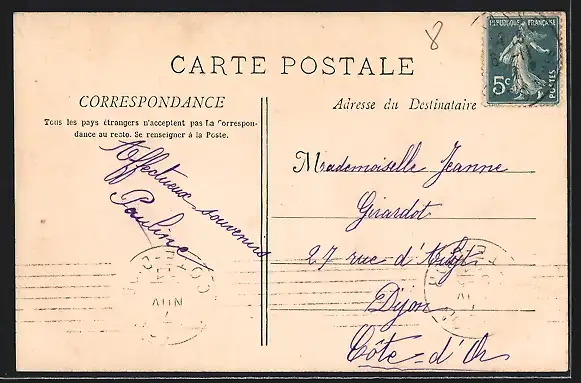 8
RÉPUBLIQUE FRANÇAISE
5c
POSTES
CARTE POSTALE
CORRESPONDANCE
Tous les pays étrangers n'acceptent pas La Correspon-
dance au recto. Se renseigner à la Poste.
Affectueux souvenirs
Pauline
Adresse du Destinataire
Mademoiselle Jeanne
Girardot
27 rue d'
Dijon
Côte-d'Or